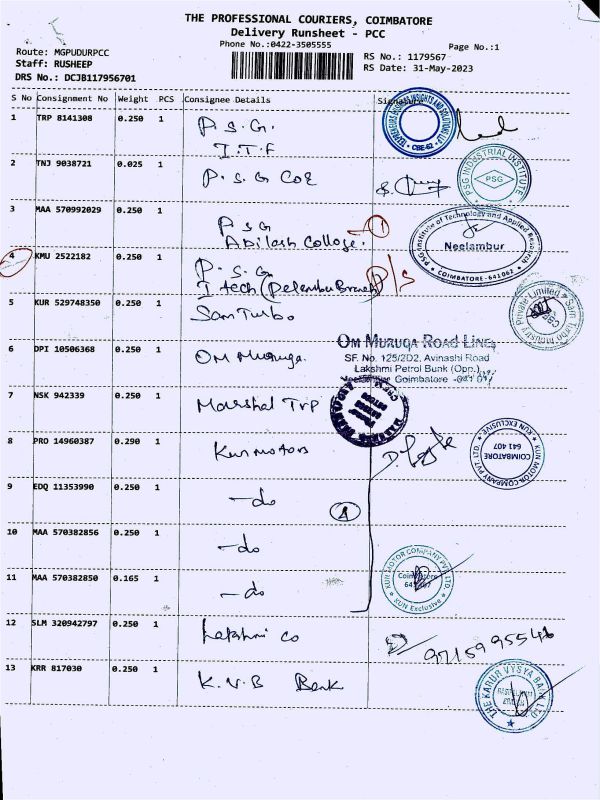 THE PROFESSIONAL COURIERS, COIMBATORE
Delivery Runsheet - PCC
Phone No.:0422-3505555
Page No.:1
Route: MGPUDURPCC
Staff: RUSHEEP
DRS No.: DCJB117956701
RS No.: 1179567
RS Date: 31-May-2023
S No Consignment No Weight PCS Consignee Details Signature
1 TRP 8141308 0.250 1 P.S.G.
I.T.F
CBE-62
2 TNJ 9038721 0.025 1 P.S.G COE
PSG INDUSTRIAL INSTITUTE
PSG
3 MAA 570992029 0.250 1 PSG
Abilash College. 1
PSG Institute of Technology and Applied Research
Neelambur
COIMBATORE-641062
4 KMU 2522182 0.250 1 P.S.G
I tech (Pelambu Branch) P/s
5 KUR 529748350 0.250 1 Sam Turbo
Sam Turbo Industry Private Limited
6 DPI 10506368 0.250 1 Om Muruga.
OM MURUGA ROAD LINES
SF. No. 125/2D2, Avinashi Road
Lakshmi Petrol Bunk (Opp.),
Coimbatore
7 NSK 942339 0.250 1 Marshal Trp
8 PRO 14960387 0.290 1 Kun motors
KUN MOTOR COMPANY PVT LTD.
COIMBATORE
641 407
KUN EXCLUSIVE
9 EDQ 11353990 0.250 1 -do
4
10 MAA 570382856 0.250 1 -do
11 MAA 570382850 0.165 1 -do
KUN MOTOR COMPANY PVT. LTD.
Coimbatore
641 407
KUN Exclusive
12 SLM 320942797 0.250 1 Lakshmi Co
13 KRR 817030 0.250 1 K.V.B Bank
THE KARUR VYSYA BANK LTD